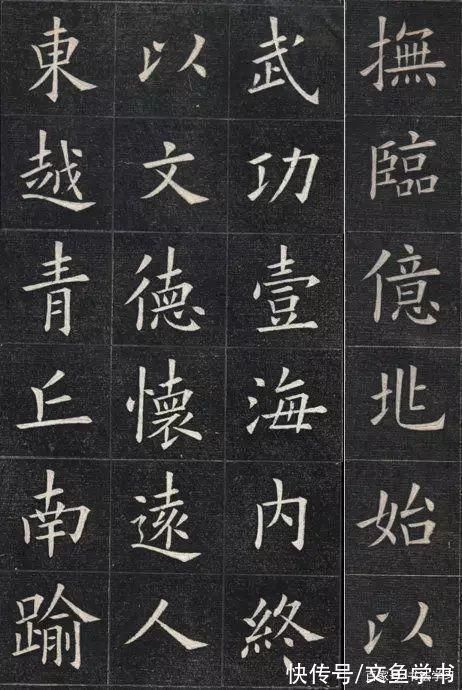 撫臨億兆始以
武功壹海內終
以文德懷遠人
東越青丘南踰
快传号/文鱼学书